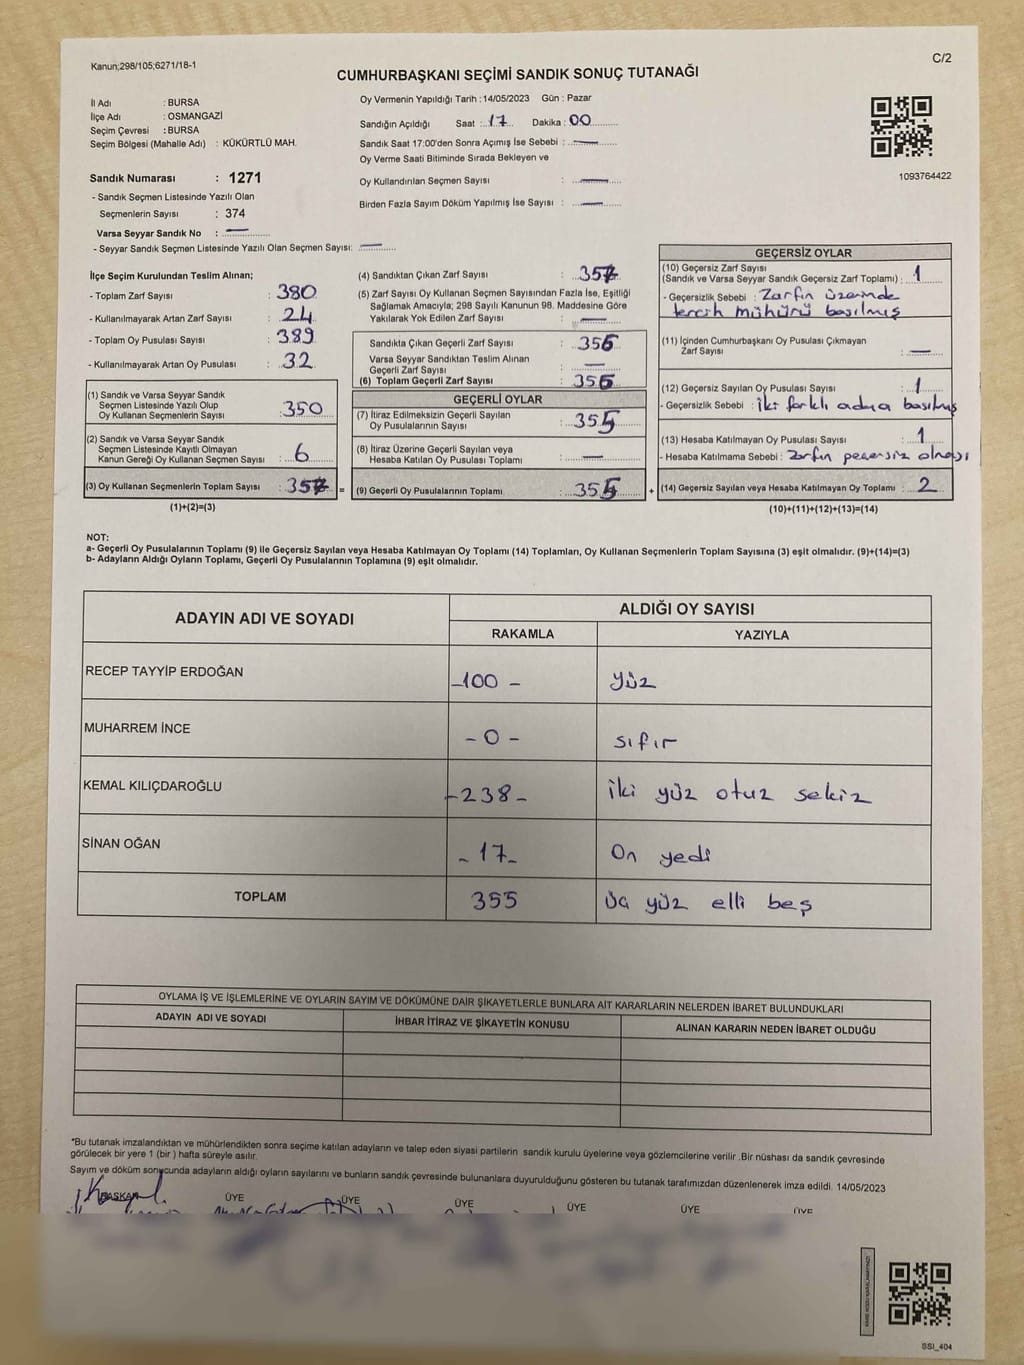 Kanun;298/105;6271/18-1
C/2
CUMHURBAŞKANI SEÇİMİ SANDIK SONUÇ TUTANAĞI
İl Adı : BURSA
İlçe Adı : OSMANGAZİ
Seçim Çevresi : BURSA
Seçim Bölgesi (Mahalle Adı) : KÜKÜRTLÜ MAH.
Sandık Numarası : 1271
- Sandık Seçmen Listesinde Yazılı Olan
Seçmenlerin Sayısı : 374
Varsa Seyyar Sandık No : —
- Seyyar Sandık Seçmen Listesinde Yazılı Olan Seçmen Sayısı: —
Oy Vermenin Yapıldığı Tarih :14/05/2023 Gün : Pazar
Sandığın Açıldığı Saat :..17.... Dakika : 00............
Sandık Saat 17:00'den Sonra Açımış İse Sebebi : —
Oy Verme Saati Bitiminde Sırada Bekleyen ve
Oy Kullandırılan Seçmen Sayısı : —
Birden Fazla Sayım Döküm Yapılmış İse Sayısı : —
1093764422
İlçe Seçim Kurulundan Teslim Alınan;
- Toplam Zarf Sayısı : 380
- Kullanılmayarak Artan Zarf Sayısı : 24
- Toplam Oy Pusulası Sayısı : 389
- Kullanılmayarak Artan Oy Pusulası : 32
(1) Sandık ve Varsa Seyyar Sandık
Seçmen Listesinde Yazılı Olup
Oy Kullanan Seçmenlerin Sayısı : 350
(2) Sandık ve Varsa Seyyar Sandık
Seçmen Listesinde Kayıtlı Olmayan
Kanun Gereği Oy Kullanan Seçmen Sayısı : 6
(3) Oy Kullanan Seçmenlerin Toplam Sayısı : 357 =
(1)+(2)=(3)
(4) Sandıktan Çıkan Zarf Sayısı : 357
(5) Zarf Sayısı Oy Kullanan Seçmen Sayısından Fazla İse, Eşitliği
Sağlamak Amacıyla; 298 Sayılı Kanunun 98. Maddesine Göre
Yakılarak Yok Edilen Zarf Sayısı : —
Sandıkta Çıkan Geçerli Zarf Sayısı : 356
Varsa Seyyar Sandıktan Teslim Alınan
Geçerli Zarf Sayısı : —
(6) Toplam Geçerli Zarf Sayısı : 356
GEÇERLİ OYLAR
(7) İtiraz Edilmeksizin Geçerli Sayılan
Oy Pusulalarının Sayısı : 355
(8) İtiraz Üzerine Geçerli Sayılan veya
Hesaba Katılan Oy Pusulası Toplamı : —
(9) Geçerli Oy Pusulalarının Toplamı : 355 +
GEÇERSİZ OYLAR
(10) Geçersiz Zarf Sayısı
(Sandık ve Varsa Seyyar Sandık Geçersiz Zarf Toplamı) : 1
- Geçersizlik Sebebi : Zarfın üzerinde
tercih mühürü basılmış
(11) İçinden Cumhurbaşkanı Oy Pusulası Çıkmayan
Zarf Sayısı : —
(12) Geçersiz Sayılan Oy Pusulası Sayısı : 1
- Geçersizlik Sebebi : iki farklı adaya basılmış
(13) Hesaba Katılmayan Oy Pusulası Sayısı : 1
- Hesaba Katılmama Sebebi : Zarfın geçersiz olması
(14) Geçersiz Sayılan veya Hesaba Katılmayan Oy Toplamı : 2
(10)+(11)+(12)+(13)=(14)
NOT:
a- Geçerli Oy Pusulalarının Toplamı (9) ile Geçersiz Sayılan veya Hesaba Katılmayan Oy Toplamı (14) Toplamları, Oy Kullanan Seçmenlerin Toplam Sayısına (3) eşit olmalıdır. (9)+(14)=(3)
b- Adayların Aldığı Oyların Toplamı, Geçerli Oy Pusulalarının Toplamına (9) eşit olmalıdır.
ADAYIN ADI VE SOYADI ALDIĞI OY SAYISI
RAKAMLA YAZIYLA
RECEP TAYYİP ERDOĞAN -100- yüz
MUHARREM İNCE -0- sıfır
KEMAL KILIÇDAROĞLU -238- iki yüz otuz sekiz
SİNAN OĞAN -17- On yedi
TOPLAM 355 üç yüz elli beş
OYLAMA İŞ VE İŞLEMLERİNE VE OYLARIN SAYIM VE DÖKÜMÜNE DAİR ŞİKAYETLERLE BUNLARA AİT KARARLARIN NELERDEN İBARET BULUNDUKLARI
ADAYIN ADI VE SOYADI İHBAR İTİRAZ VE ŞİKAYETİN KONUSU ALINAN KARARIN NEDEN İBARET OLDUĞU
*Bu tutanak imzalandıktan ve mühürlendikten sonra seçime katılan adayların ve talep eden siyasi partilerin sandık kurulu üyelerine veya gözlemcilerine verilir .Bir nüshası da sandık çevresinde
görülecek bir yere 1 (bir ) hafta süreyle asılır.
Sayım ve döküm sonucunda adayların aldığı oyların sayılarını ve bunların sandık çevresinde bulunanlara duyurulduğunu gösteren bu tutanak tarafımızdan düzenlenerek imza edildi. 14/05/2023
BAŞKAN ÜYE ÜYE ÜYE ÜYE ÜYE ÜYE
SSI_404